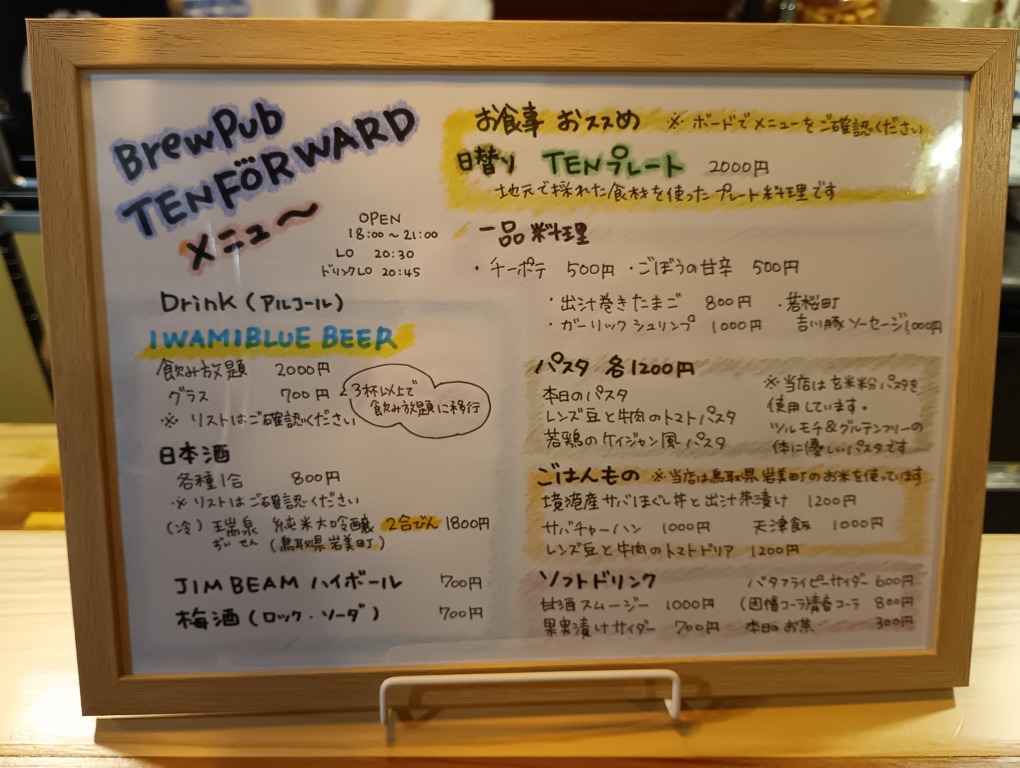 BrewPub
TENFORWARD
メニュ〜
OPEN
18:00〜21:00
LO 20:30
ドリンクLO 20:45
Drink (アルコール)
IWAMIBLUE BEER
飲み放題 2000円
グラス 700円
3杯以上で
飲み放題に移行
※ リストはご確認ください
日本酒
各種1合 800円
※ リストはご確認ください
(冷) 瑞泉 純米大吟醸 2合びん 1800円
ずいせん (鳥取県岩美町)
JIM BEAM ハイボール 700円
梅酒 (ロック・ソーダ) 700円
お食事 おススめ ※ ボードでメニューをご確認ください
日替り TENプレート 2000円
地元で採れた食材を使ったプレート料理です
一品料理
・チーポテ 500円 ・ごぼうの甘辛 500円
・出汁巻きたまご 800円 ・若桜町
・ガーリックシュリンプ 1000円 吉川豚ソーセージ1000円
パスタ 各1200円
本日のパスタ
レンズ豆と牛肉のトマトパスタ
若鶏のケイジャン風パスタ
※当店は玄米粉パスタを
使用しています。
ツルモチ&グルテンフリーの
体に優しいパスタです
ごはんもの ※当店は鳥取県岩美町のお米を使っています
境港産サバほぐし丼と出汁茶漬け 1200円
サバチャーハン 1000円 天津飯 1000円
レンズ豆と牛肉のトマトドリア 1200円
ソフトドリンク バタフライピーサイダー 600円
甘酒スムージー 1000円 (因幡コーラ)青春コーラ 800円
果実漬けサイダー 700円 本日のお茶 300円